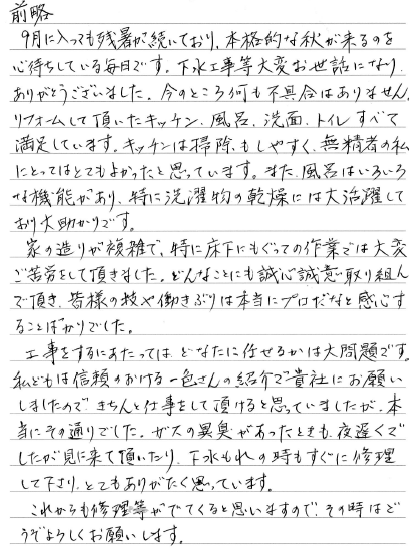 前略
9月に入っても残暑が続いており、本格的な秋が来るのを
心待ちしている毎日です。下水工事等大変お世話になり、
ありがとうございました。今のところ何も不具合はありません。
リフォームして頂いたキッチン、風呂、洗面、トイレすべて
満足しています。キッチンは掃除もしやすく、無精者の私
にとってはとてもよかったと思っています。また、風呂はいろいろ
な機能があり、特に洗濯物の乾燥には大活躍して
おり大助かりです。
家の造りが複雑で、特に床下にもぐっての作業では大変
ご苦労をして頂きました。どんなことにも誠心誠意取り組ん
で頂き、皆様の技や働きぶりは本当にプロだなと感心す
ることばかりでした。
工事をするにあたっては、どなたに任せるかは大問題です。
私どもは信頼のおける一色さんの紹介で貴社にお願い
しましたので、きちんと仕事をして頂けると思っていましたが、本
当にその通りでした。ガスの異臭があったときも、夜遅くで
したが見に来て頂いたり、下水もれの時もすぐに修理
して下さり、とてもありがたく思っています。
これからも修理等がでてくると思いますので、その時はど
うぞよろしくお願いします。